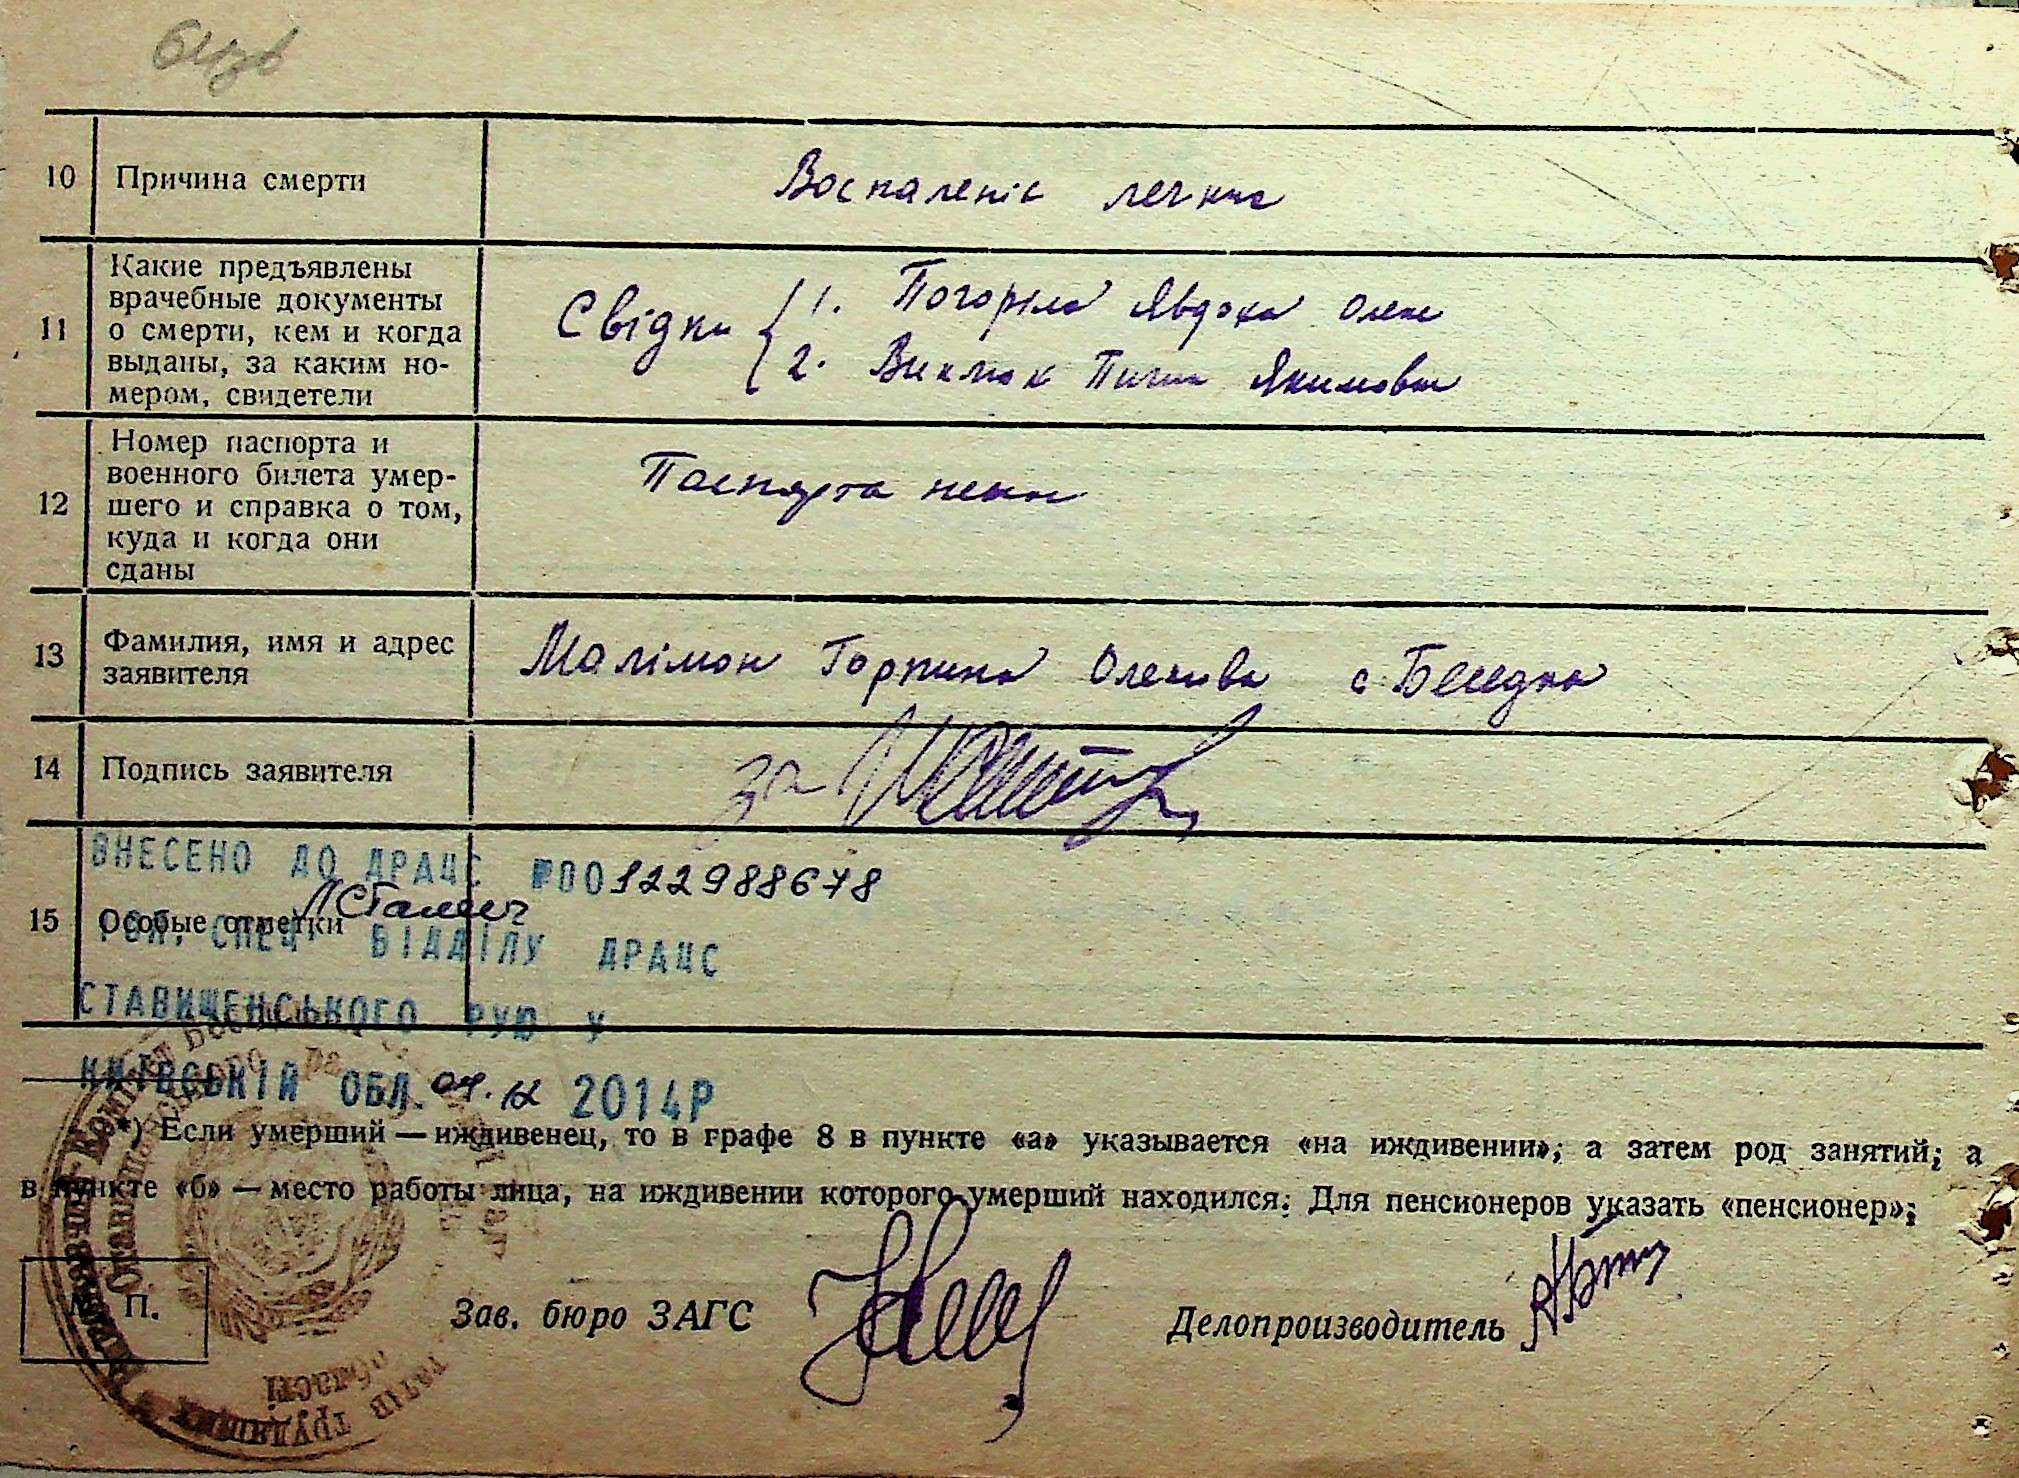 10 Причина смерти Воспаленіє легких
11 Какие предъявлены врачебные документы о смерти, кем и когда выданы, за каким номером, свидетели
Свідки { 1. Погоріла Явдоха Олек
2. Виклюк Якимовна
12 Номер паспорта и военного билета умершего и справка о том, куда и когда они сданы
Паспорта нема
13 Фамилия, имя и адрес заявителя
Малімон Горпина Олексівна с Беседка
14 Подпись заявителя за
ВНЕСЕНО ДО ДРАЦС №00122988678
15 Особые отметки
СПЕЦ ВІДДІЛУ ДРАЦС
СТАВИЩЕНСЬКОГО РУЮ У
КИЇВСЬКІЙ ОБЛ. 04.12 2014Р
*) Если умерший — иждивенец, то в графе 8 в пункте «а» указывается «на иждивении»; а затем род занятий; а
в пункте «б» — место работы лица, на иждивении которого умерший находился. Для пенсионеров указать «пенсионер»;
П.
Зав. бюро ЗАГС
Делопроизводитель